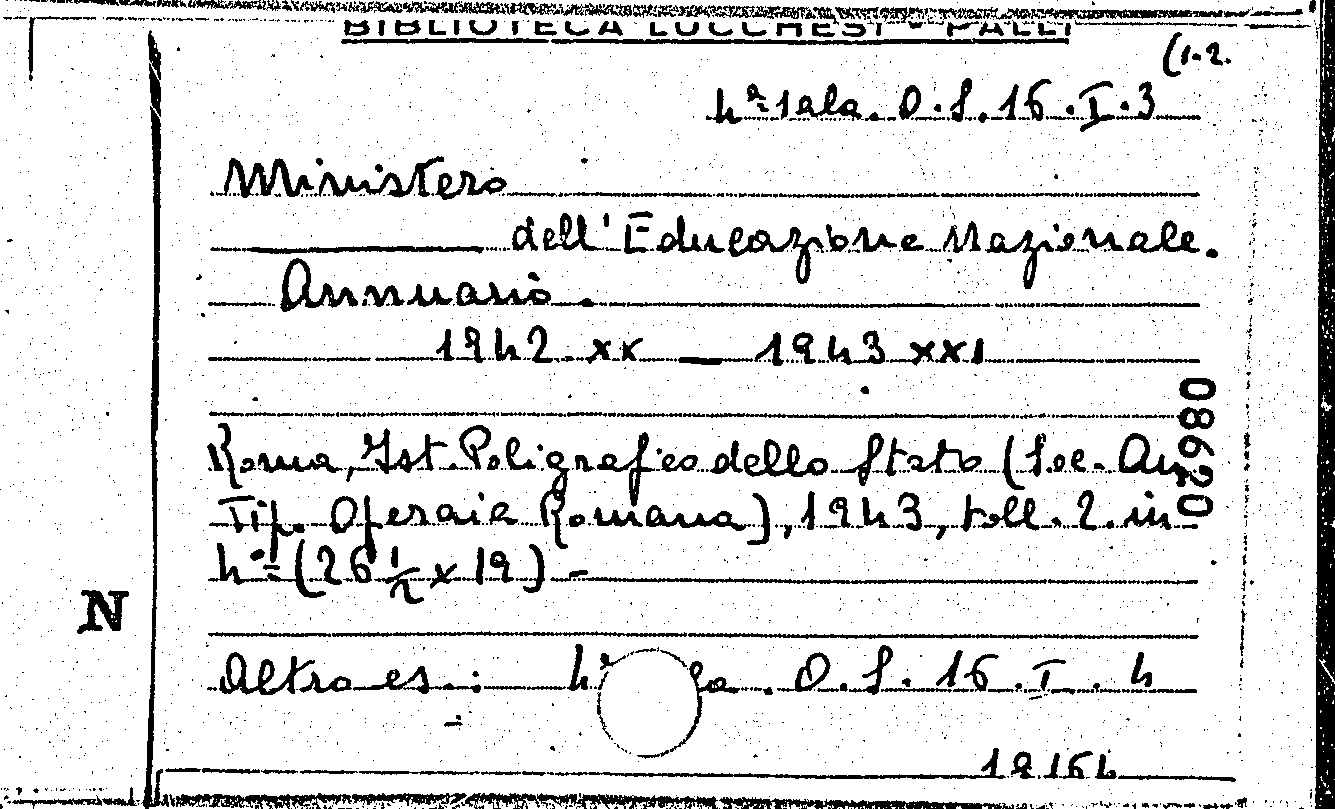 BIBLIOTECA LUCCHESI - PALLI
(1-2.
4ª sala. O.S. 16.I.3
Ministero
dell'Educazione Nazionale.
Annuario.
1942 XX — 1943 XXI
Roma, Ist. Poligrafico dello Stato (Soc. An
Tip. Operaia Romana), 1943, voll. 2. in
4° (26 1/2 x 19) -
N
Altro es.: 4ª la. O.S. 16.I.4
08620